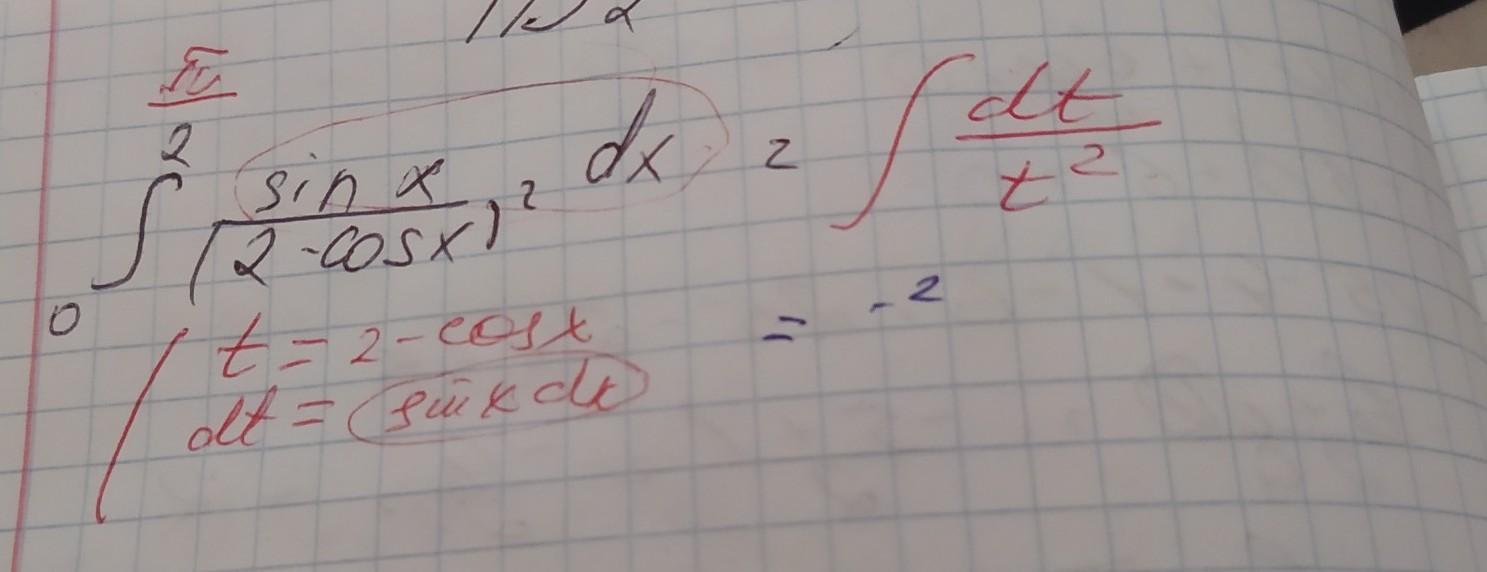 π
2
∫ sin x / (2-cosx)² dx = ∫ dt / t²
0
t = 2-cosx = -2
dt = sinx dx